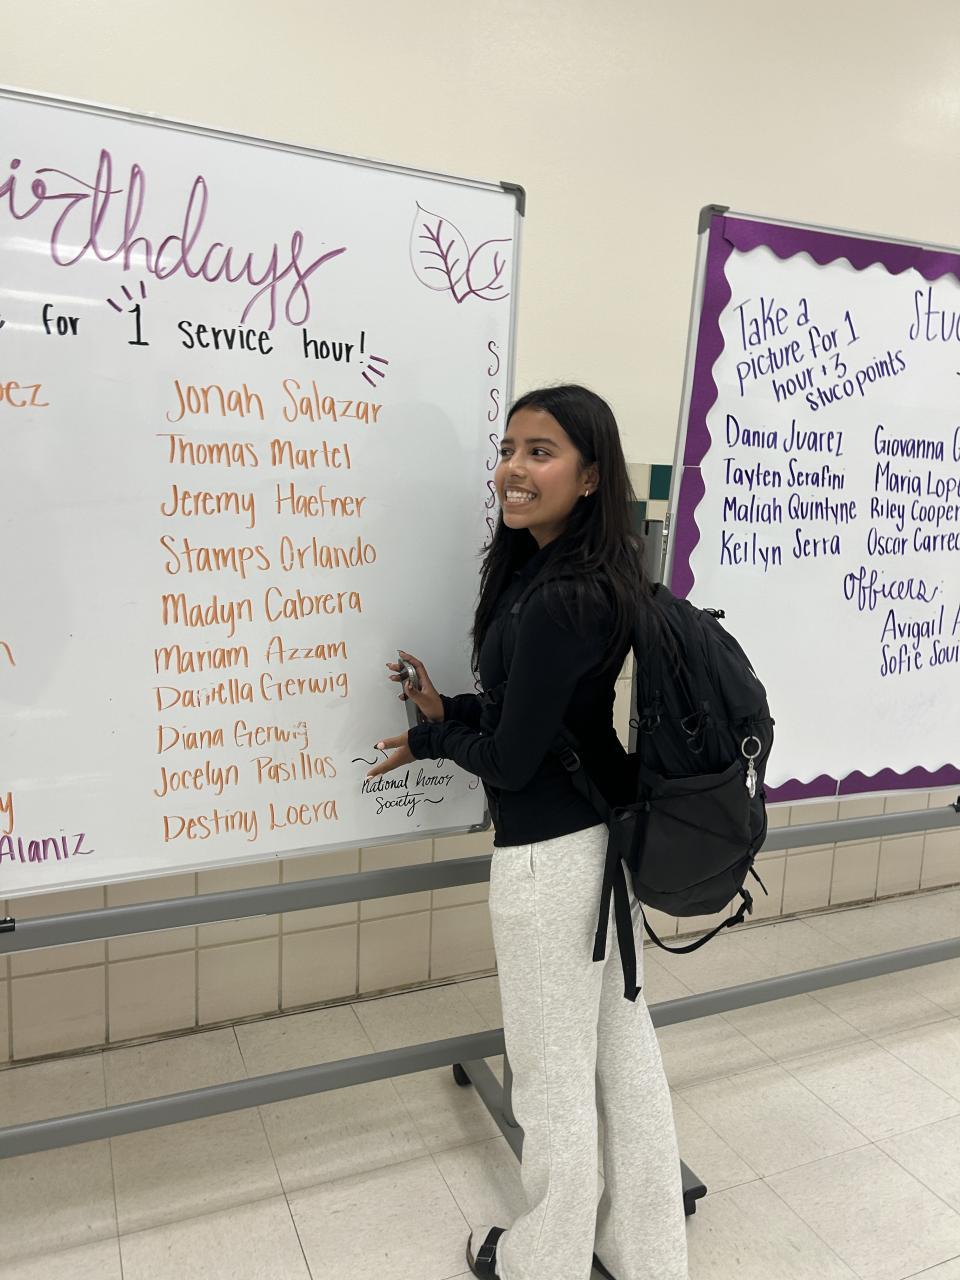 Birthdays
for 1 service hour!
Jonah Salazar
Thomas Martel
Jeremy Haefner
Stamps Orlando
Madyn Cabrera
Mariam Azzam
Daniella Gerwig
Diana Gerwig
Jocelyn Pasillas
Destiny Loera
Alaniz
S
S
S
S
S
national honor
Society
Take a
picture for 1
hour + 3
Stuco points
Stuc
Dania Juarez
Tayten Serafini
Maliah Quintyne
Keilyn Serra
Giovanna G
Maria Lop
Riley Cooper
Oscar Carre
Officers:
Avigail A
Sofie Sou